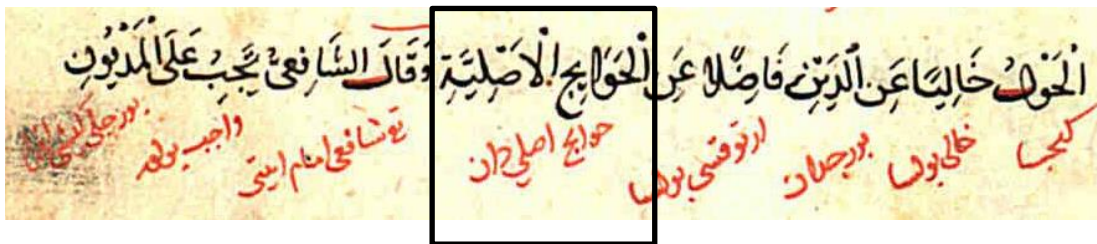 الْحَوْلُ خَالِيًا عَنِ الدَّيْنِ فَاضِلًا عَنِ الْحَوَايِجِ الْاَصْلِيَّةِ وَقَالَ الشَّافِعِيُّ يَجِبُ عَلَى الْمَدْيُونِ
كيجسا خالى بولسا بورجدان ارتوقسى بولسا حوايج اصلي دان شافعى امام ايتتى واجب بولور